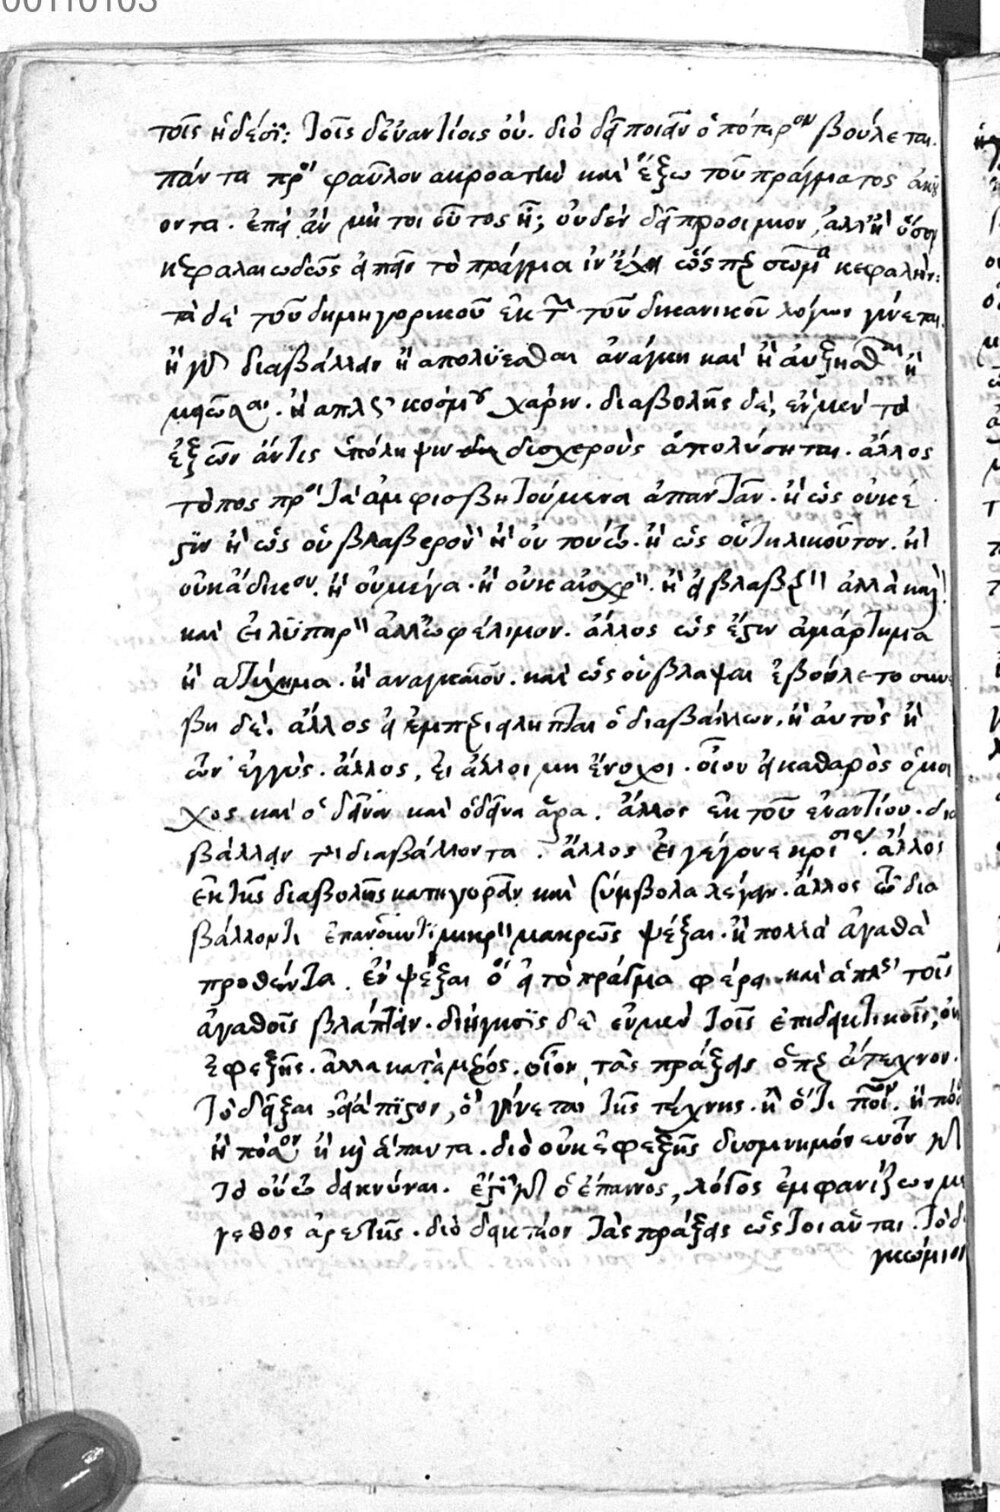 00110103
τοῖς ἡδέσι: τοῖς δ' ἐναντίοις οὐ. διὸ δεῖ ποιεῖν ὁπότερον βούλεται.
πάντα πρὸς φαῦλον ἀκροατὴν καὶ ἔξω τοῦ πράγματος ἀκού
οντα. ἐπεὶ ἂν μὴ τοιοῦτος ᾖ; οὐδὲν δεῖ προοιμίου, ἀλλ' ἢ ὅσον
κεφαλαιωδῶς εἰπεῖν τὸ πρᾶγμα ἵν' ἔχῃ ὥσπερ σῶμα κεφαλήν:
τὰ δὲ τοῦ δημηγορικοῦ ἐκ τῶν τοῦ δικανικοῦ λόγου γίνεται.
ἢ γὰρ διαβάλλειν ἢ ἀπολύεσθαι ἀνάγκη καὶ ἢ αὐξῆσαι ἢ
μειῶσαι. ἢ ἁπλῶς κόσμου χάριν. διαβολῆς δὲ, ἓν μὲν τὸ
ἐξ ὧν ἄν τις ὑπόληψιν δυσχεροῦς ἀπολύσηται. ἄλλος
τόπος πρὸς τὰ ἀμφισβητούμενα ἀπαντᾶν. ἢ ὡς οὐκ ἔ
στιν ἢ ὡς οὐ βλαβερὸν ἢ οὐ τούτῳ. ἢ ὡς οὐ τηλικοῦτον. ἢ
οὐκ ἄδικον. ἢ οὐ μέγα. ἢ οὐκ αἰσχρὸν. ἢ εἰ βλαβερὸν ἀλλὰ καλὸν.
καὶ εἰ λυπηρὸν ἀλλ' ὠφέλιμον. ἄλλος ὡς ἔστιν ἁμάρτημα
ἢ ἀτύχημα. ἢ ἀναγκαῖον. καὶ ὡς οὐ βλάψαι ἐβούλετο συνέ
βη δέ. ἄλλος εἰ ἐμπεριείληπται ὁ διαβάλλων. ἢ αὐτὸς ἢ
τῶν ἐγγύς. ἄλλος, εἰ ἄλλοι μὴ ἔνοχοι. οἷον εἰ καθαρὸς ὁ μοι
χὸς καὶ ὁ δεῖνα καὶ ὁ δεῖνα ἄρα. ἄλλος ἐκ τοῦ ἐναντίου. δια
βάλλειν τὸν διαβάλλοντα. ἄλλος εἰ γέγονε κρίσις. ἄλλος
ἐκ τῆς διαβολῆς κατηγορεῖν καὶ σύμβολα λέγειν. ἄλλος τῷ δια
βάλλοντι ἐπαινοῦντι μικρὸν μακρῶς ψέξαι. ἢ πολλὰ ἀγαθὰ
προθέντα. ἓν ψέξαι ὃ εἰς τὸ πρᾶγμα φέρει. καὶ ἁπλῶς τοῖς
ἀγαθοῖς βλάπτειν. διήγησις δὲ ἐν μὲν τοῖς ἐπιδεικτικοῖς, οὐκ
ἐφεξῆς. ἀλλὰ κατὰ μέρος. οἷον τὰς πράξεις ὅπερ ἄτεχνον.
τὸ δεῖξαι εἰ ἄπιστον, ὃ γίνεται τῆς τέχνης. ἢ ὅτι ποιὸν. ἢ πόσ
ἢ ποσὸν ἢ καὶ ἅπαντα. διὸ οὐκ ἐφεξῆς δυσμνημόνευτον γὰρ
τὸ οὕτω δεικνύναι. ἔστι γὰρ ὁ ἔπαινος, λόγος ἐμφανίζων μέ
γεθος ἀρετῆς. διὸ δεικτέον τὰς πράξεις ὡς τοιαῦται. τὸ δ'
γκώμιον